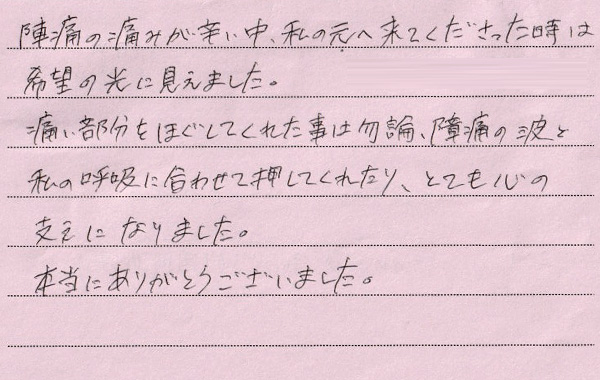 陣痛の痛みが辛い中、私の元へ来てくださった時は
希望の光に見えました。
痛い部分をほぐしてくれた事は勿論、障痛の波と
私の呼吸に合わせて押してくれたり、とても心の
支えになりました。
本当にありがとうございました。